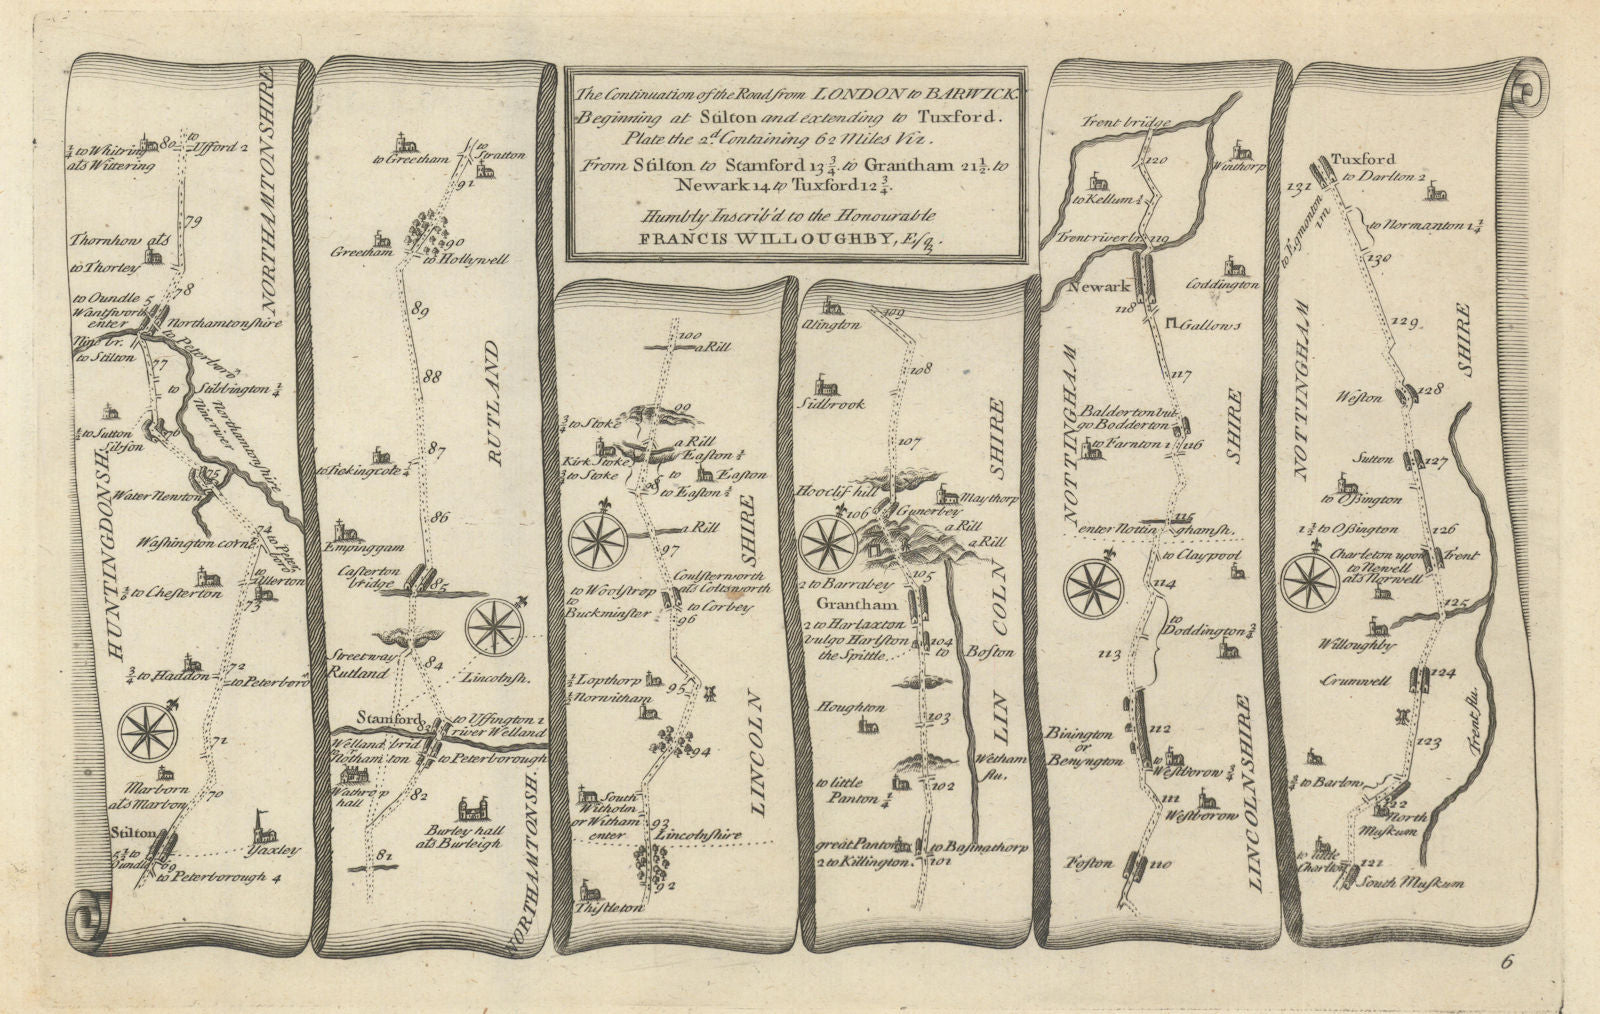 The Continuation of the Road from LONDON to BARWICK
Beginning at Stilton and extending to Tuxford.
Plate the 2.d Containing 62 Miles Viz.
From Stilton to Stamford 13 3/4. to Grantham 21 1/2. to
Newark 14 to Tuxford 12 3/4.
Humbly Inscrib'd to the Honourable
FRANCIS WILLOUGHBY, Esq.
3/4 to Whitring
als Wittering
80
to
Ufford 2
NORTHAMTONSHIRE
79
Thornhow als
to Thorley
78
to Oundle 5
Wantsworth
enter
Northamtonshire
Nine br.
to Stilton
to Peterboro
77
to
Stibbington 3/4
to Sutton
Sibson
76
Nine river
Northamtonshire
75
Water Newton
74
to Peter
boro
Washington corner
to
Allerton
to Chesterton
73
HUNTINGDONSH.
72
3/4 to Haddon
to Peterboro
71
Marborn
als Marbon
70
Stilton
Yaxley
69
to Peterborough 4
to Greetham
to
Stratton
91
90
Greetham
to Hollywell
89
88
RUTLAND
87
to Tickingcote
86
Empinggam
Casterton
bridge
85
Streetway
Rutland
84
Lincolnsh.
Stamford
83
to Uffington 1
river Welland
Welland brid
to Peterborough
Wathrop
hall
82
Burley hall
als Burleigh
81
NORTHAMTONSH.
100
a Rill
99
3/4 to Stoke
a Rill
Kirk Stoke
Easton 1/2
3/4 to Stoke
to
Easton
98
to Easton
a Rill
97
Coulsterworth
als Coltsworth
to Woolstrop
to
Buckminster
to Corbey
96
SHIRE
1/2 Lopthorp
95
1/2 Norwitham
94
LINCOLN
South
Witholm
or Witham
enter
93
Lincolnshire
92
Thistleton
109
Alington
108
Sidbrook
107
SHIRE
Hooclif hill
Maythorp
106
Gunerbey
a Rill
a Rill
2 to Barrabey
105
Grantham
2 to Harlaxton
vulgo Harlston
the Spittle
104
to
Boston
COLN
LIN
Houghton
103
Wetham
flu.
to little
Panton 1/4
102
great Panton
to Basingthorp
2 to Killington
101
Trent bridge
120
Winthorp
to Kellum
Trent river br.
119
Newark
Coddington
118
Gallows
117
Balderton vul
go Bodderton
to Farnton 1
116
NOTTINGHAM
SHIRE
115
enter Nottin
ghamsh.
to Claypool
114
to
Doddington 3/4
113
112
Binington
or
Benyngton
to
Westborow
111
Westborow
Foston
110
LINCOLNSHIRE
Tuxford
to Darlton 2
131
to Egmanton
1 m
to Normanton 1 1/4
130
129
SHIRE
Weston
128
Sutton
127
to Ossington
NOTTINGHAM
1 1/2 to Ossington
126
Charleton upon
Trent
to Newell
als Norwell
125
Willoughby
Crumwell
124
123
Trent flu.
3/4 to Barlow
122
North
Muskum
to little
Charlton
121
South Muskum
6